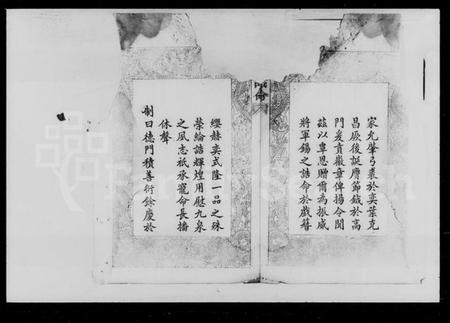 家允肇弓裘於奕葉克
昌厥後誕膺節鉞於高
門爰賁徽章俾揚令聞
茲以覃恩贈爾為振威
將軍錫之誥命於戲籍
纓赫奕式隆一品之殊
榮綸誥輝煌用慰九泉
之夙志祇承寵命長播
休聲
制曰德門積善衍餘慶於